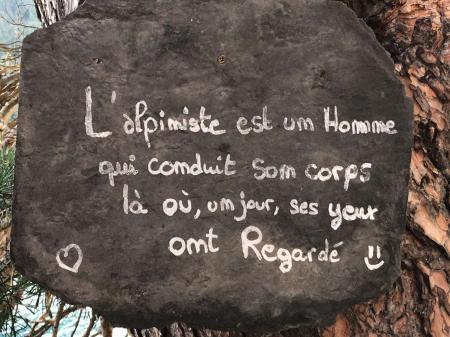 L'alpiniste est un Homme
qui conduit son corps
là où, un jour, ses yeux
ont Regardé